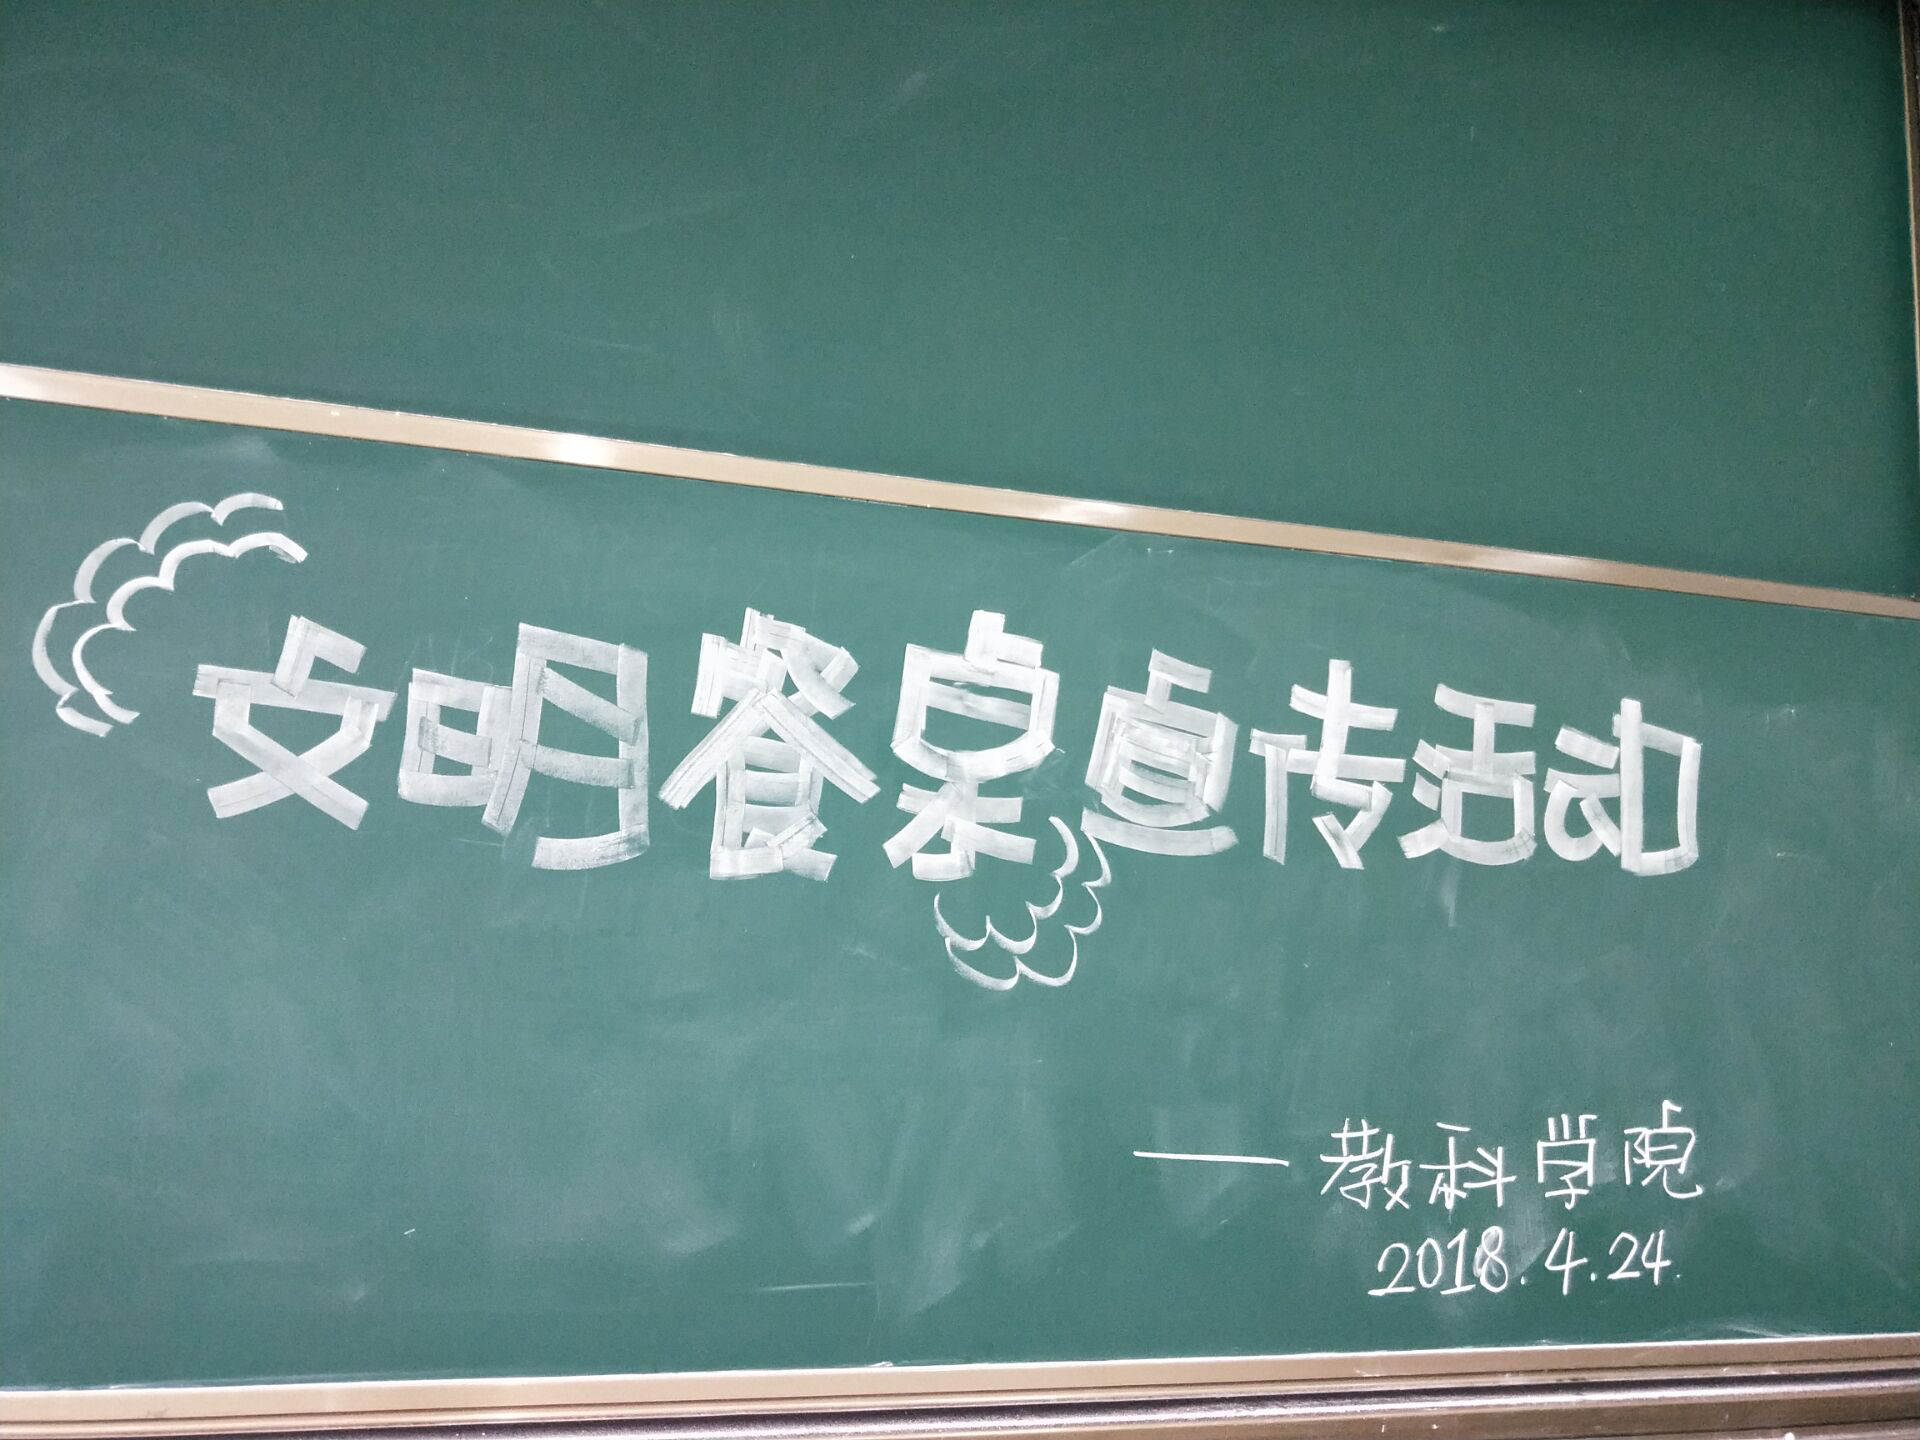 文明餐桌宣传活动
——教科学院
2018.4.24.